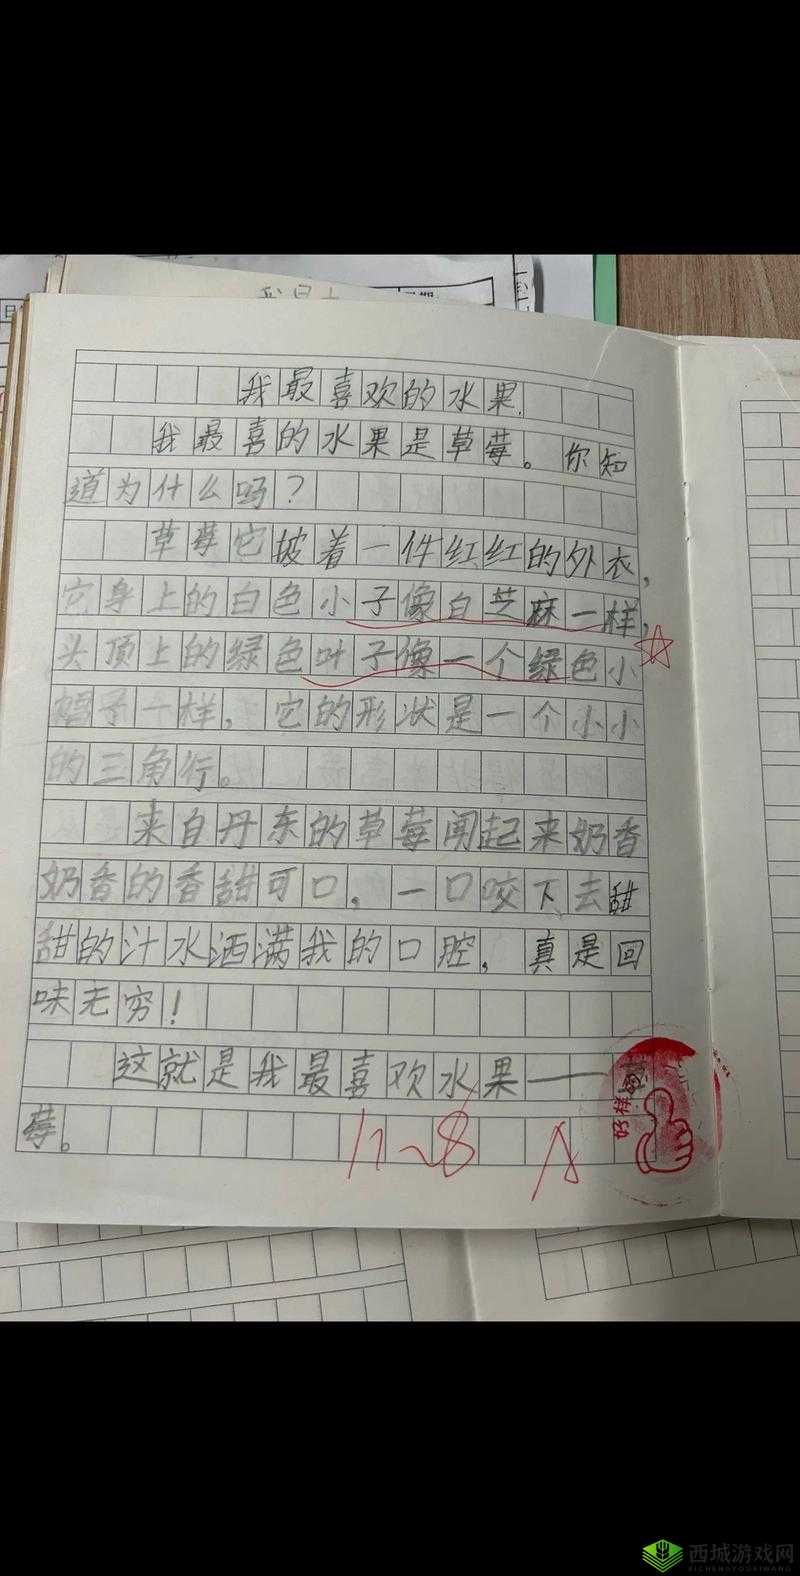 我最喜欢的水果
我最喜的水果是草莓。你知
道为什么吗？
草莓它披着一件红红的外衣，
它身上的白色小子像白芝麻一样，
头顶上的绿色叶子像一个绿色小
帽子一样，它的形状是一个小小
的三角行。
来自丹东的草莓闻起来奶香
奶香的香甜可口，一口咬下去甜
甜的汁水洒满我的口腔，真是回
味无穷！
这就是我最喜欢水果——草
莓。
11~8 A
好样的
西城游戏网
XICHENGYOUXIWANG